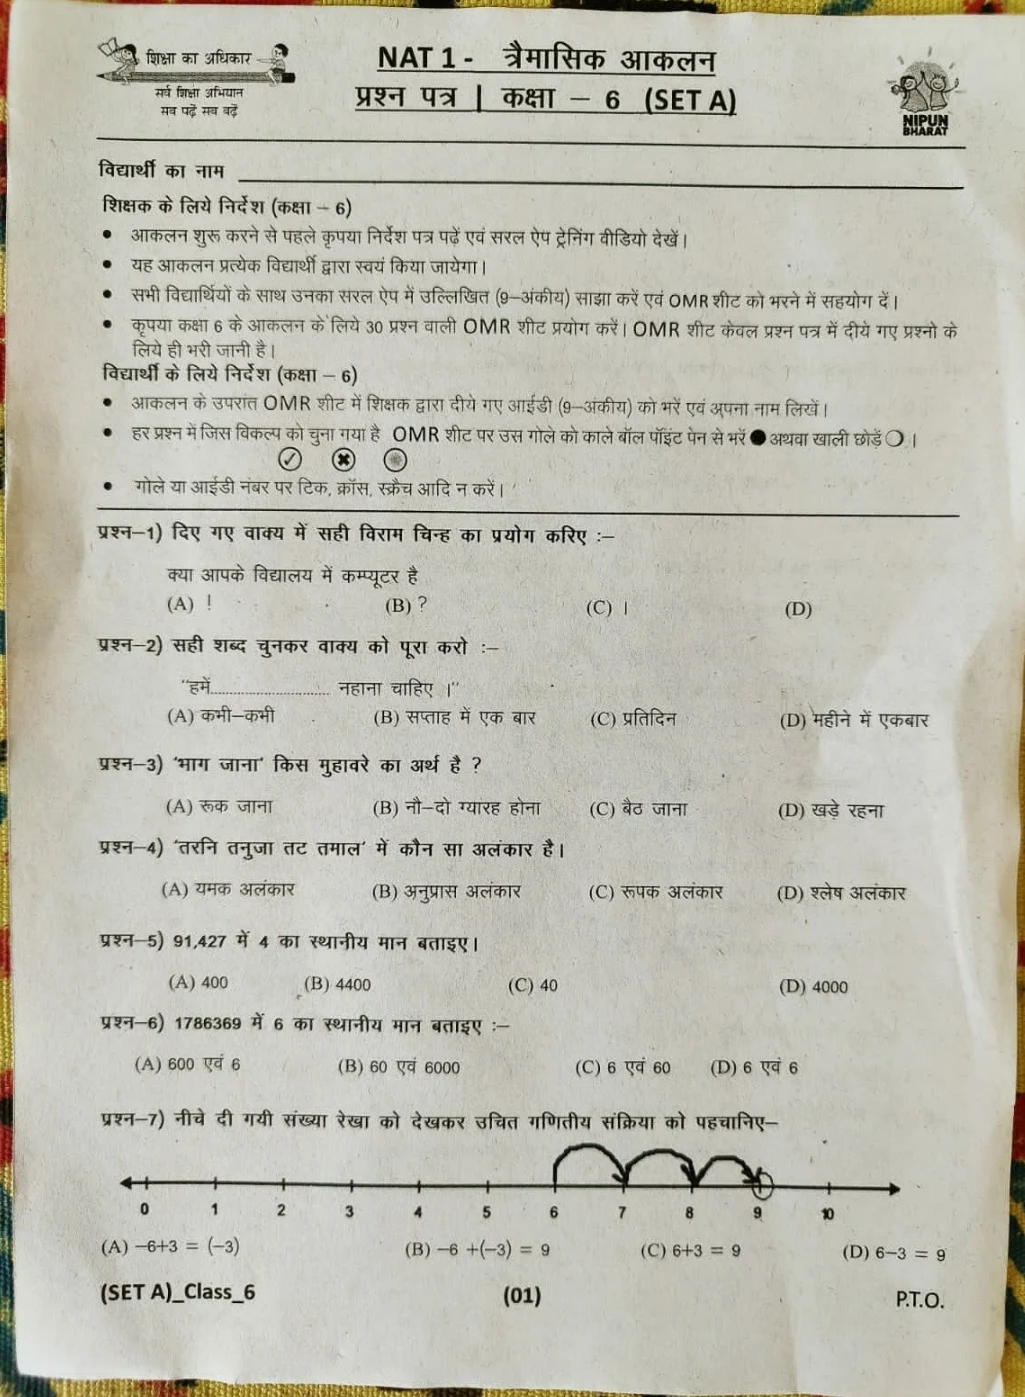 शिक्षा का अधिकार
सर्व शिक्षा अभियान
सब पढ़ें सब बढ़ें
NAT 1 - त्रैमासिक आकलन
प्रश्न पत्र | कक्षा – 6 (SET A)
NIPUN
BHARAT
विद्यार्थी का नाम
शिक्षक के लिये निर्देश (कक्षा – 6)
• आकलन शुरू करने से पहले कृपया निर्देश पत्र पढ़ें एवं सरल ऐप ट्रेनिंग वीडियो देखें।
• यह आकलन प्रत्येक विद्यार्थी द्वारा स्वयं किया जायेगा।
• सभी विद्यार्थियों के साथ उनका सरल ऐप में उल्लिखित (9–अंकीय) साझा करें एवं OMR शीट को भरने में सहयोग दें।
• कृपया कक्षा 6 के आकलन के लिये 30 प्रश्न वाली OMR शीट प्रयोग करें। OMR शीट केवल प्रश्न पत्र में दीये गए प्रश्नो के
लिये ही भरी जानी है।
विद्यार्थी के लिये निर्देश (कक्षा – 6)
• आकलन के उपरांत OMR शीट में शिक्षक द्वारा दीये गए आईडी (9–अंकीय) को भरें एवं अपना नाम लिखें।
• हर प्रश्न में जिस विकल्प को चुना गया है OMR शीट पर उस गोले को काले बॉल पॉइंट पेन से भरें ● अथवा खाली छोड़ें ○।
• गोले या आईडी नंबर पर टिक, क्रॉस, स्क्रैच आदि न करें।
प्रश्न–1) दिए गए वाक्य में सही विराम चिन्ह का प्रयोग करिए :–
क्या आपके विद्यालय में कम्प्यूटर है
(A) ! (B) ? (C) । (D)
प्रश्न–2) सही शब्द चुनकर वाक्य को पूरा करो :–
“हमें............................. नहाना चाहिए ।”
(A) कभी–कभी (B) सप्ताह में एक बार (C) प्रतिदिन (D) महीने में एकबार
प्रश्न–3) ‘भाग जाना’ किस मुहावरे का अर्थ है ?
(A) रूक जाना (B) नौ–दो ग्यारह होना (C) बैठ जाना (D) खड़े रहना
प्रश्न–4) ‘तरनि तनुजा तट तमाल’ में कौन सा अलंकार है।
(A) यमक अलंकार (B) अनुप्रास अलंकार (C) रूपक अलंकार (D) श्लेष अलंकार
प्रश्न–5) 91,427 में 4 का स्थानीय मान बताइए।
(A) 400 (B) 4400 (C) 40 (D) 4000
प्रश्न–6) 1786369 में 6 का स्थानीय मान बताइए :–
(A) 600 एवं 6 (B) 60 एवं 6000 (C) 6 एवं 60 (D) 6 एवं 6
प्रश्न–7) नीचे दी गयी संख्या रेखा को देखकर उचित गणितीय संक्रिया को पहचानिए–
0 1 2 3 4 5 6 7 8 9 10
(A) –6+3 = (–3) (B) –6 +(–3) = 9 (C) 6+3 = 9 (D) 6–3 = 9
(SET A)_Class_6 (01) P.T.O.